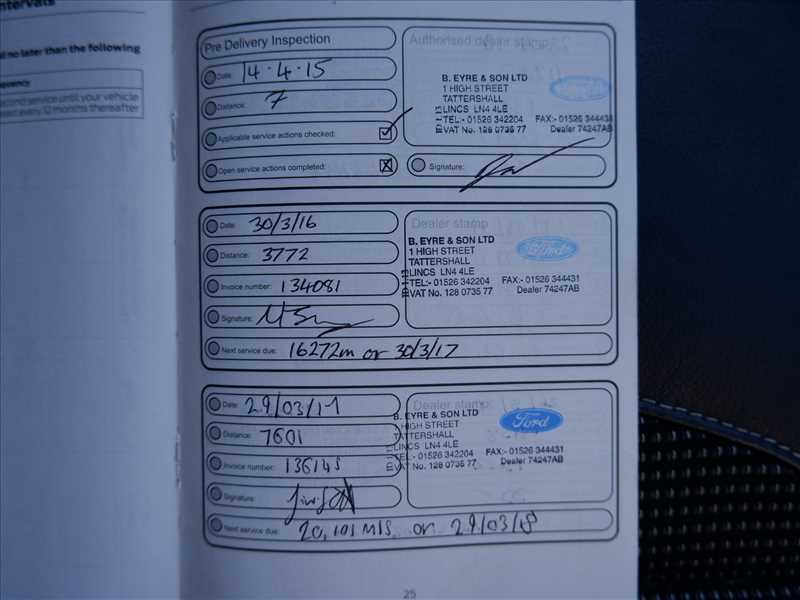 ntervals
d no later than the following
second service until your vehicle
every 12 months thereafter
Pre Delivery Inspection
Authorised dealer stamp:
Date: 14.4.15
Distance: 7
Applicable service actions checked:
Open service actions completed:
B. EYRE & SON LTD
1 HIGH STREET
TATTERSHALL
LINCS LN4 4LE
TEL:- 01526 342204 FAX:- 01526 344431
VAT No. 128 0735 77 Dealer 74247AB
Signature:
Date: 30/3/16
Distance: 3772
Invoice number: 134081
Signature:
Next service due: 16272m or 30/3/17
Dealer stamp
B. EYRE & SON LTD
1 HIGH STREET
TATTERSHALL
LINCS LN4 4LE
TEL:- 01526 342204 FAX:- 01526 344431
VAT No. 128 0735 77 Dealer 74247AB
Ford
Date: 29/03/17
Distance: 7601
Invoice number: 136145
Signature:
Next service due: 20,101 MIS. or 29/03/18
Dealer stamp:
B. EYRE & SON LTD
1 HIGH STREET
TATTERSHALL
LINCS LN4 4LE
TEL:- 01526 342204 FAX:- 01526 344431
VAT No. 128 0735 77 Dealer 74247AB
Ford
25